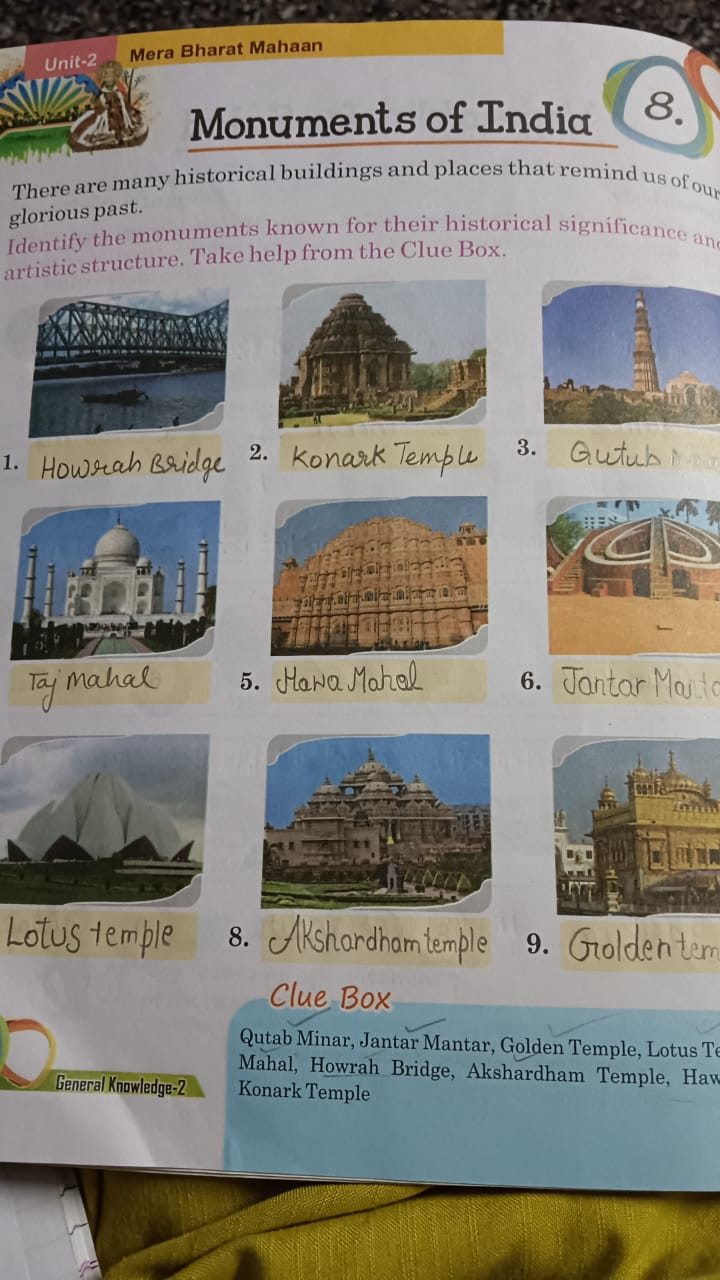 Unit-2 Mera Bharat Mahaan
Monuments of India 8.
There are many historical buildings and places that remind us of our
glorious past.
Identify the monuments known for their historical significance and
artistic structure. Take help from the Clue Box.
1. Howrah Bridge 2. Konark Temple 3. Qutub
Taj Mahal 5. Hawa Mahal 6. Jantar
Lotus temple 8. Akshardham temple 9. Golden tem
Clue Box
Qutab Minar, Jantar Mantar, Golden Temple, Lotus Te
Mahal, Howrah Bridge, Akshardham Temple, Haw
Konark Temple
General Knowledge-2